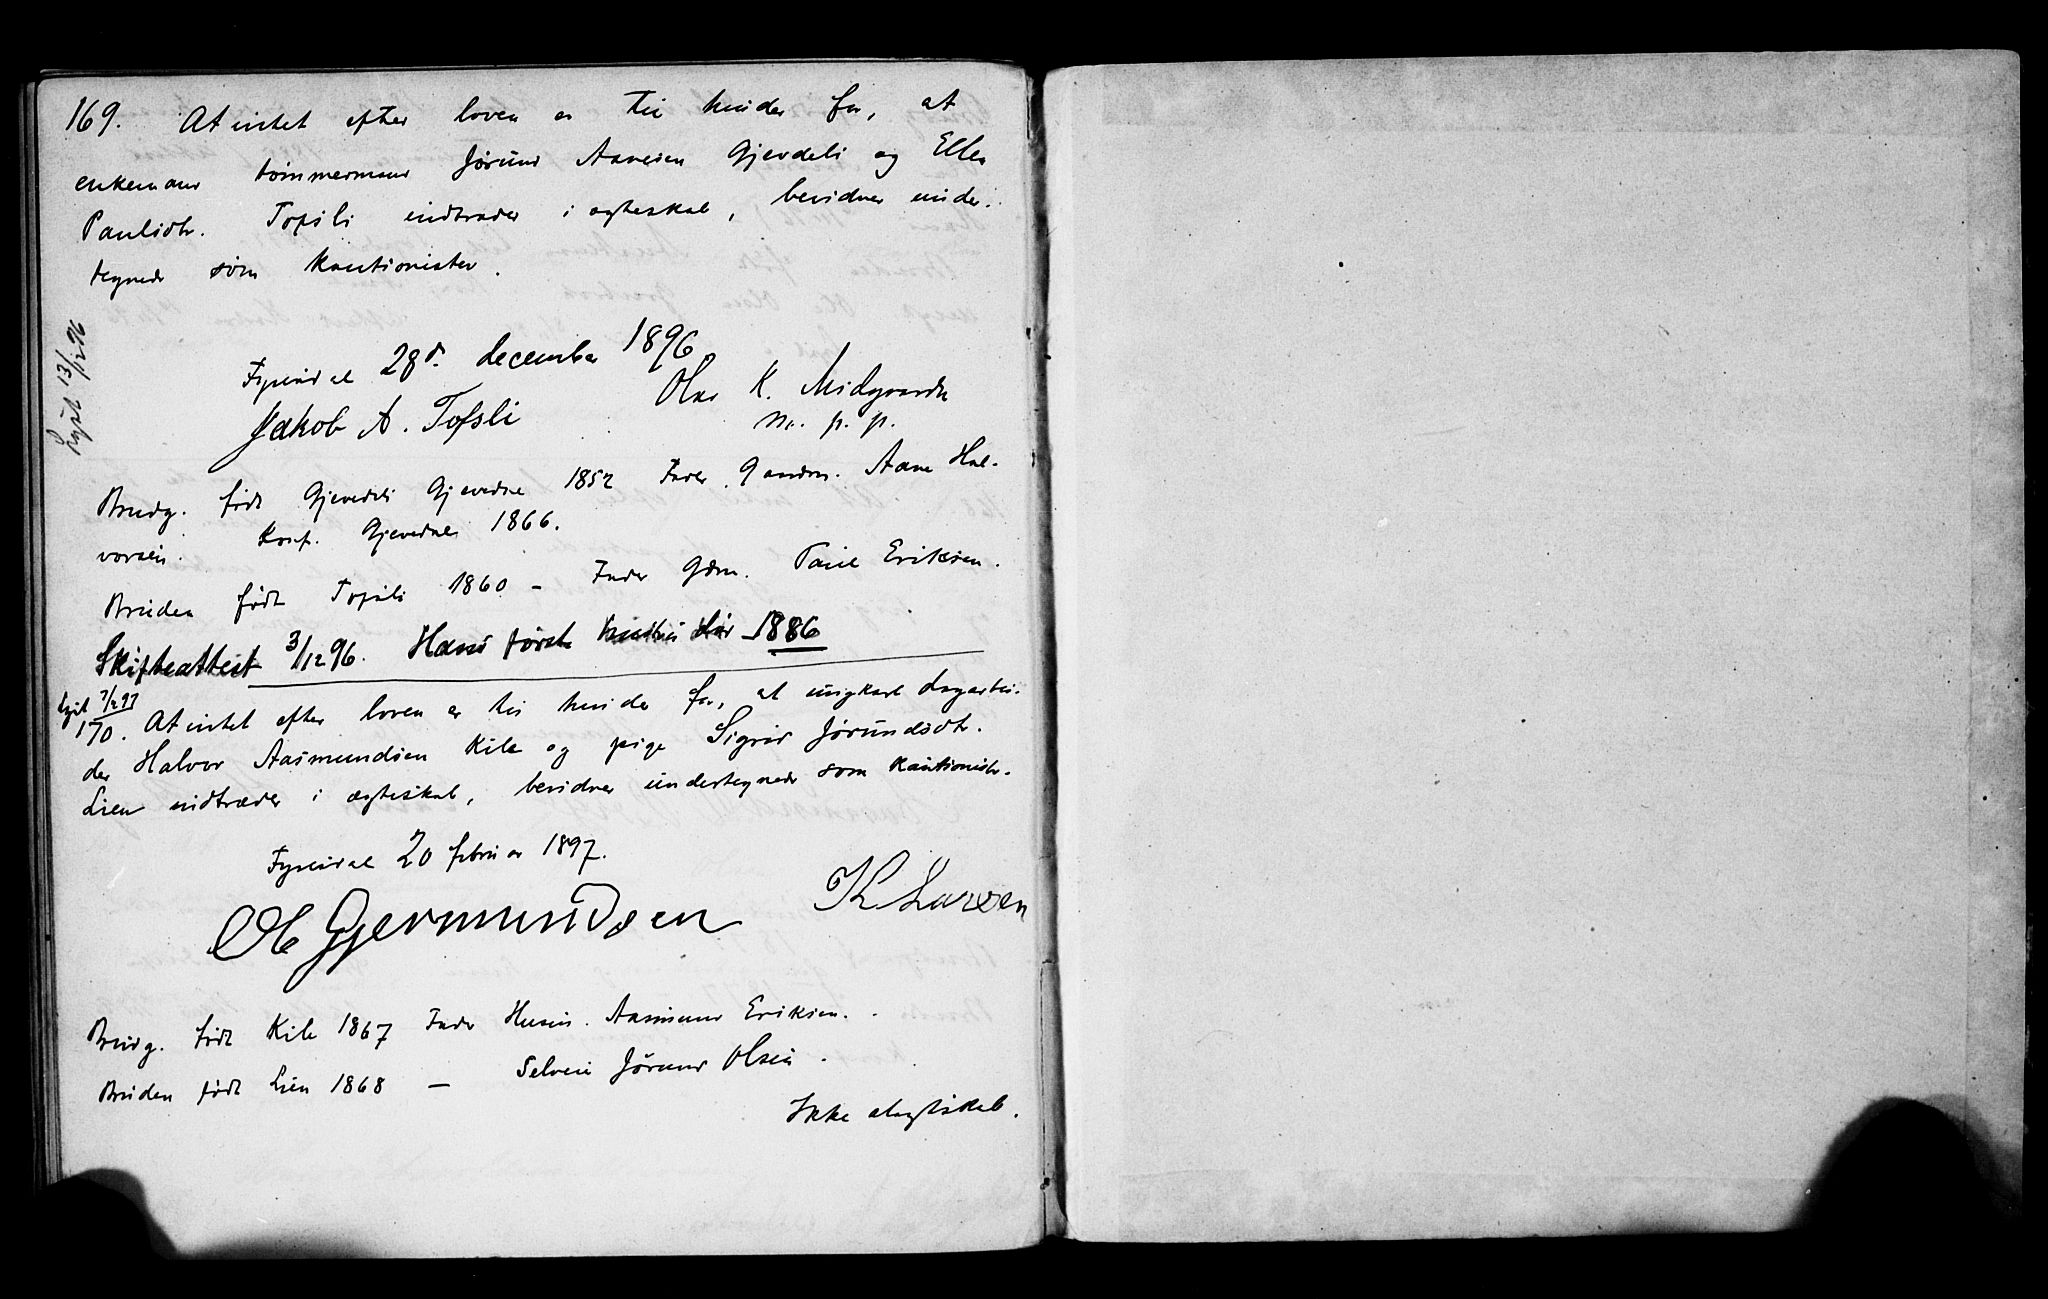 169. At intet efter loven er til hinder for, at
enkemand tømmermand Jørund Aanesen Gjevdeli og Ellen
Paulsdtr. Tofsli indtræder i ægteskab, bevidner under-
tegnede som kautionister.
Lyst 13/12 96
Fyresdal 28d. december 1896
Jakob A. Tofsli
Olav K. Midgaarden
m. p. p.
Brudg. født Gjevdeli Gjevedal 1852 Fader Gaardm. Aane Hal-
vorsen. Konf. Gjevedal 1866.
Bruden født Tofsli 1860 – Fader Gdm. Paul Eriksen.
Skifteattest 3/12 96. Hans første hustru dør 1886
Lyst 7/2 97
170. At intet efter loven er til hinder for, at ungkarl dagarbei-
der Halvor Aasmundsen Kile og pige Sigrid Jørundsdtr.
Lien indtræder i ægteskab, bevidner undertegnede som kautionistr.
Fyresdal 20 februar 1897.
Ole Gjermundsen
K Larsen
Brudg. født Kile 1867 Fader Husm. Aasmund Eriksen.
Bruden født Lien 1868 – Selveier Jørund Olsen.
Ikke slegtskab.